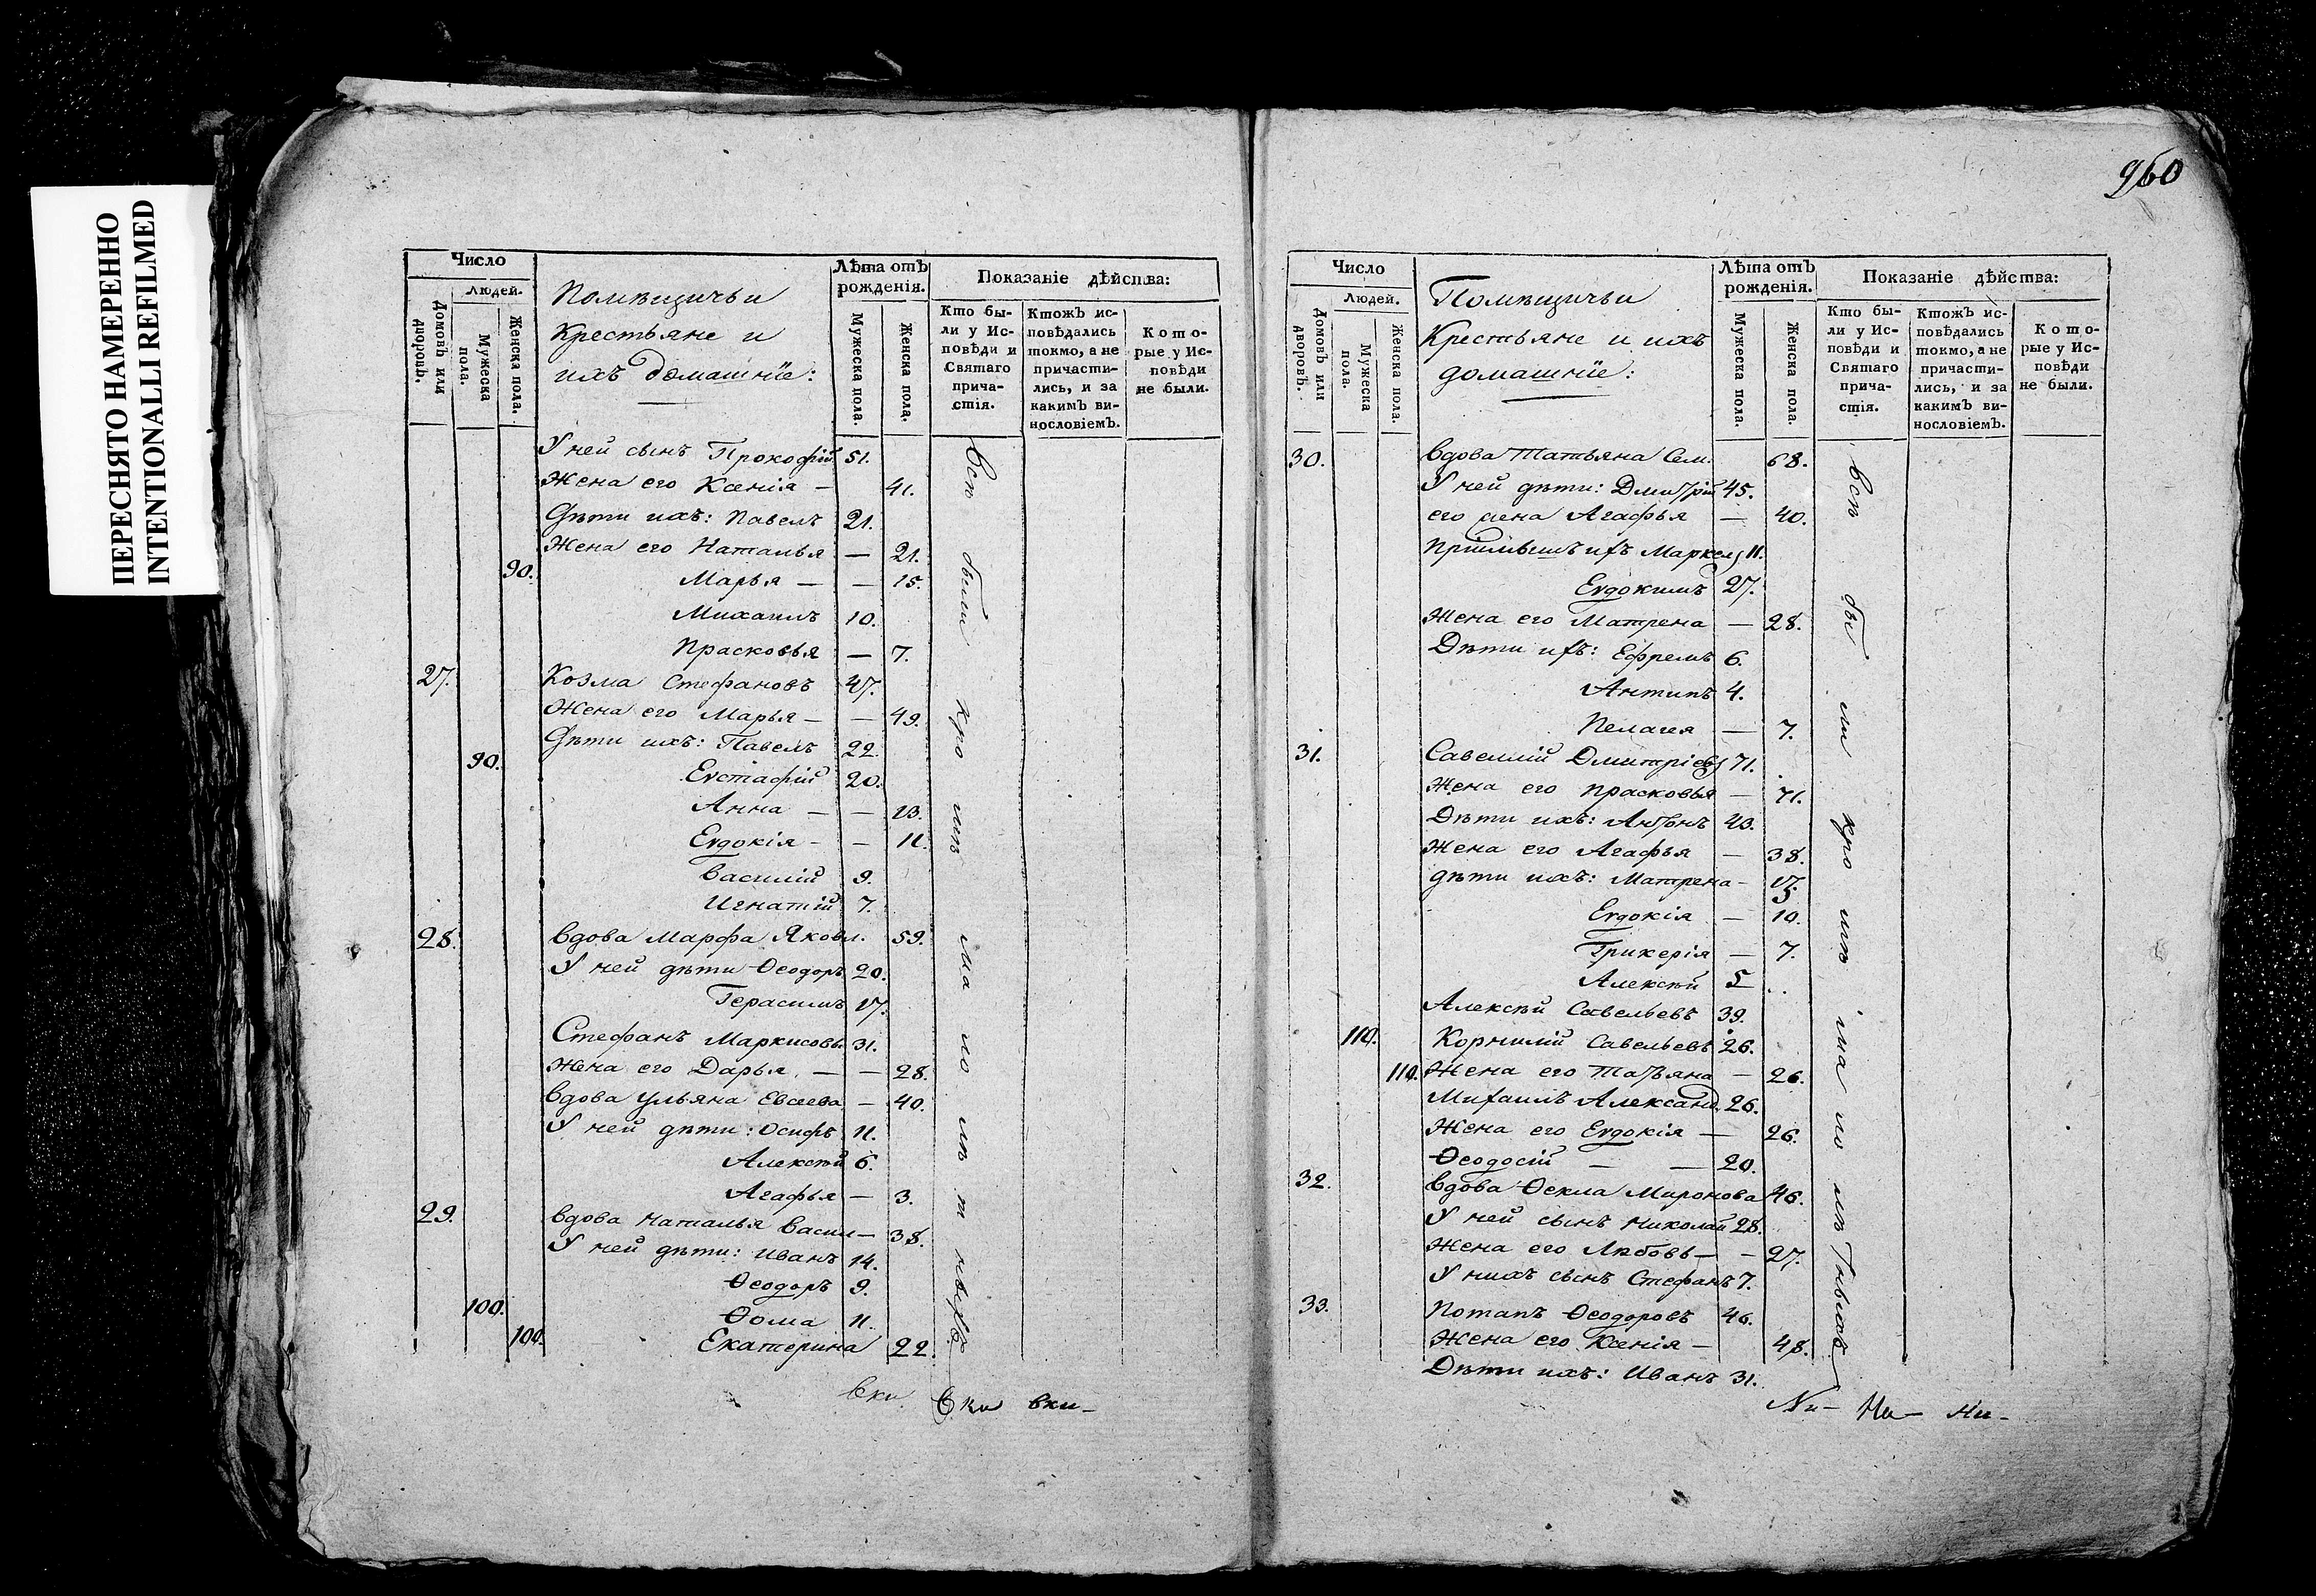 ПЕРЕСНЯТО НАМЕРЕННО
INTENTIONALLI REFILMED
Число
Людей.
Домовъ или дворовъ.
Мужеска пола.
Женска пола.
Помѣщичьи
Крестьяне и
ихъ домашніе:
Лѣта отъ рожденія.
Мужеска пола.
Женска пола.
Показаніе дѣйства:
Кто были у Исповѣди и Святаго причастія.
Ктожъ исповѣдались токмо, а не причастились, и за какимъ винословіемъ.
Которые у Исповѣди не были.
У ней сынъ Прокофій 51.
Жена его Ксенія — 41.
Дѣти ихъ: Павелъ 21.
Жена его Наталья — 21.
90. Марья — — 15.
Михаилъ 10.
Прасковья — 7.
27. Козма Стефановъ 47.
Жена его Марья — — 49.
Дѣти ихъ: Павелъ 22.
90. Евстафій 20.
Анна — — 13.
Евдокія — — 11.
Василій 9.
Игнатій 7.
28. Вдова Марфа Яковл. 59.
У ней дѣти Ѳеодоръ 20.
Герасимъ 17.
Стефанъ Маркисовъ 31.
Жена его Дарья — — 28.
Вдова Ульяна Евсеева — 40.
У ней дѣти: Осифъ 11.
Алексѣй 6.
Агафья — 3.
29. Вдова Наталья Васил — 38.
У ней дѣти: Иванъ 14.
Ѳеодоръ 9.
100. Ѳома 11.
100. Екатерина 22.
всѣ были кромѣ малолѣт
960
Число
Людей.
Домовъ или дворовъ.
Мужеска пола.
Женска пола.
Помѣщичьи
Крестьяне и ихъ
домашніе:
Лѣта отъ рожденія.
Мужеска пола.
Женска пола.
Показаніе дѣйства:
Кто были у Исповѣди и Святаго причастія.
Ктожъ исповѣдались токмо, а не причастились, и за какимъ винословіемъ.
Которые у Исповѣди не были.
30. Вдова Татьяна Сем. 68.
У ней дѣти: Дмитрій 45.
его жена Агафья — 40.
ихъ Маркелъ 11.
Евдокимъ 27.
Жена его Матрена — 28.
Дѣти ихъ: Ефремъ 6.
Антипъ 4.
Пелагея — 7.
31. Савеллій Дмитріевъ 71.
Жена его Прасковья — 71.
Дѣти ихъ: Антонъ 43.
Жена его Агафья — 38.
дѣти ихъ: Матрена — 17.
Евдокія — 10.
Гликерія — 7.
Алексѣй 5
Алексѣй Савельевъ 39.
110. Корнилій Савельевъ 26.
110. Жена его Татьяна — 26.
Михаилъ Александ. 26.
Жена его Евдокія — 26.
Ѳеодосій — — 20.
32. Вдова Ѳекла Миронова 46.
У ней сынъ Николай 28.
Жена его Любовь — — 27.
У нихъ сынъ Стефанъ 7.
33. Потапъ Ѳеодоровъ 46.
Жена его Ксенія — 48.
Дѣти ихъ: Иванъ 31.
всѣ были кромѣ малолѣтныхъ